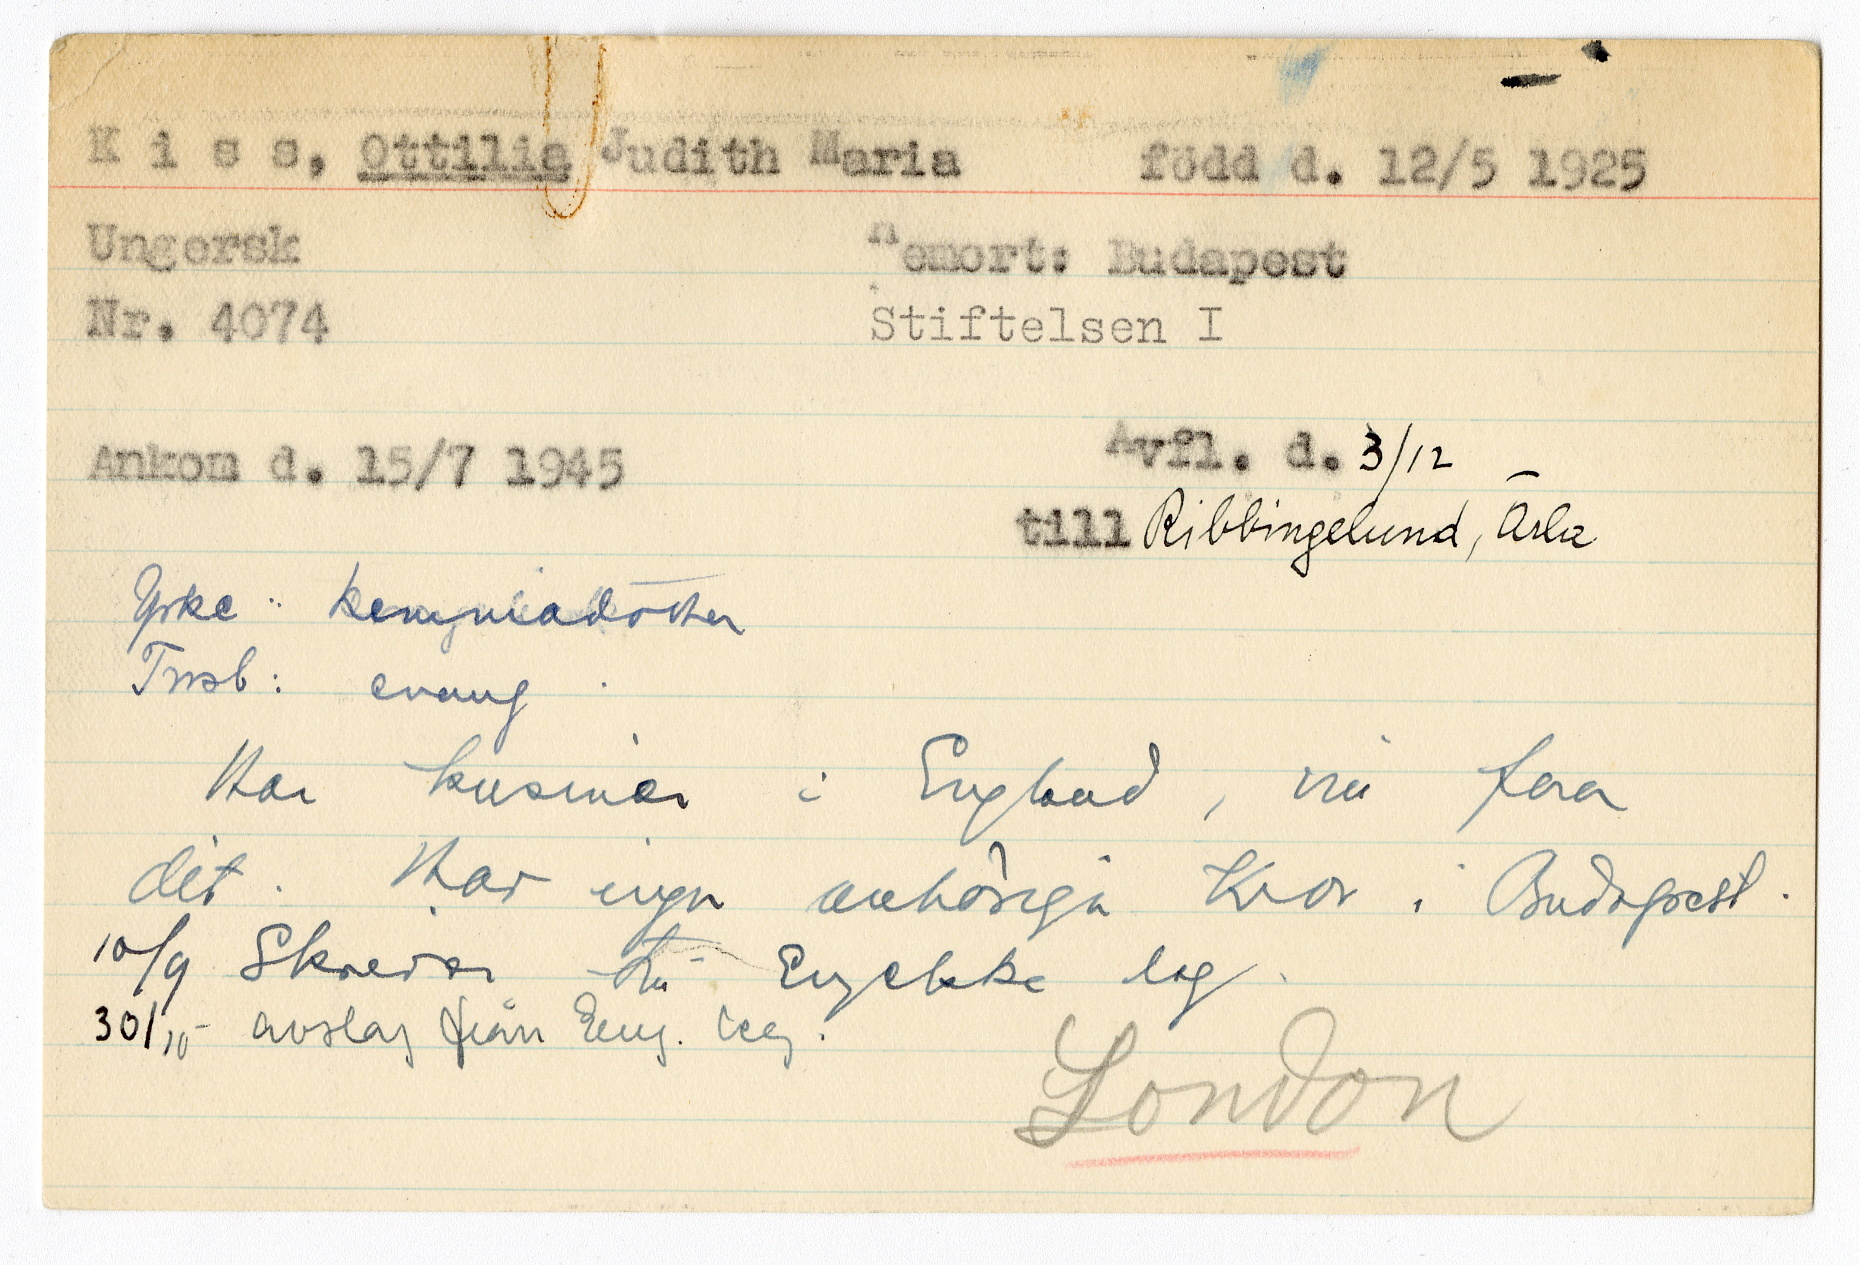 K i s s, Ottilie Judith Maria född d. 12/5 1925
Ungersk Hemort: Budapest
Nr. 4074 Stiftelsen I
Ankom d. 15/7 1945 Avfl. d. 3/12
till Ribbingelund, Ärla
Yrke:
Trosb: evang
Har kusiner i England, vill fara
dit. Har inga anhöriga kvar i Budapest.
10/9 Skriver till Engelska leg.
30/10 avslag från Eng. leg.
London